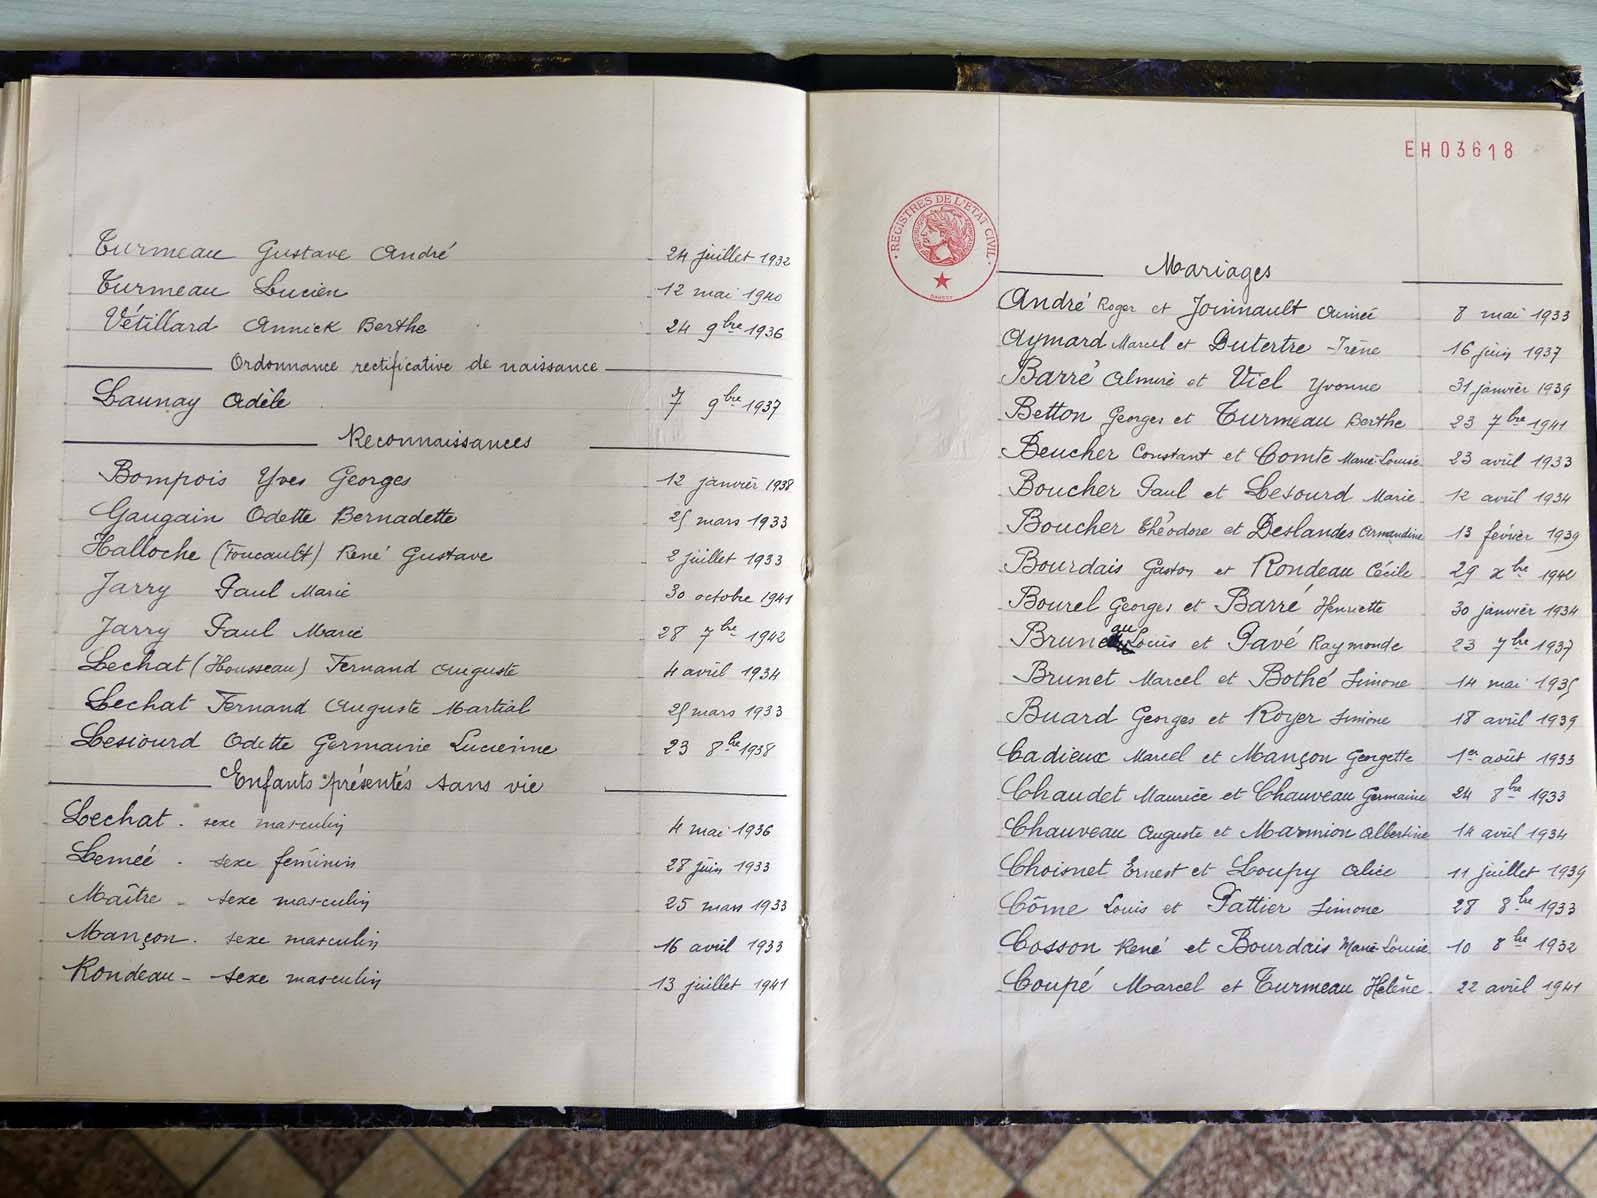 Turmeau Gustave André 24 juillet 1932
Turmeau Lucien 12 mai 1940
Vétillard Annick Berthe 24 9bre 1936
Ordonnance rectificative de naissance
Launay Adèle 7 9bre 1937
Reconnaissances
Bompois Yves Georges 12 janvier 1938
Gaugain Odette Bernadette 25 mars 1933
Halloche (Foucault) René Gustave 2 juillet 1933
Jarry Paul Marie 30 octobre 1941
Jarry Paul Marie 28 7bre 1942
Lechat (Housseau) Fernand Auguste 4 avril 1934
Lechat Fernand Auguste Martial 25 mars 1933
Lesiourd Odette Germaine Lucienne 23 8bre 1938
Enfants présentés sans vie
Lechat - sexe masculin 4 mai 1936
Lemeé - sexe féminin 28 juin 1933
Maître - sexe masculin 25 mars 1933
Mançon - sexe masculin 16 avril 1933
Rondeau - sexe masculin 13 juillet 1941
EH03618
REGISTRES DE L'ETAT CIVIL
Mariages
André Roger et Joinnault Aimée 8 mai 1933
Aymard Marcel et Dutertre Irène 16 juin 1937
Barré Almire et Viel Yvonne 31 janvier 1939
Betton Georges et Turmeau Berthe 23 7bre 1941
Beucher Constant et Comte Marie-Louise 23 avril 1933
Boucher Paul et Lesourd Marie 12 avril 1934
Boucher Théodore et Deslandes Armandine 13 février 1939
Bourdais Gaston et Rondeau Cécile 29 xbre 1940
Bourel Georges et Barré Henriette 30 janvier 1934
Bruneau Louis et Pavé Raymonde 23 7bre 1937
Brunet Marcel et Bothé Simone 14 mai 1935
Buard Georges et Royer Simone 18 avril 1939
Cadieux Marcel et Mançon Georgette 1er août 1933
Chaudet Maurice et Chauveau Germaine 24 8bre 1933
Chauveau Auguste et Marmion Albertine 14 avril 1934
Choisnet Ernest et Loupy Alice 11 juillet 1939
Côme Louis et Pattier Simone 28 8bre 1933
Cosson René et Bourdais Marie-Louise 10 8bre 1932
Coupé Marcel et Turmeau Hélène 22 avril 1941